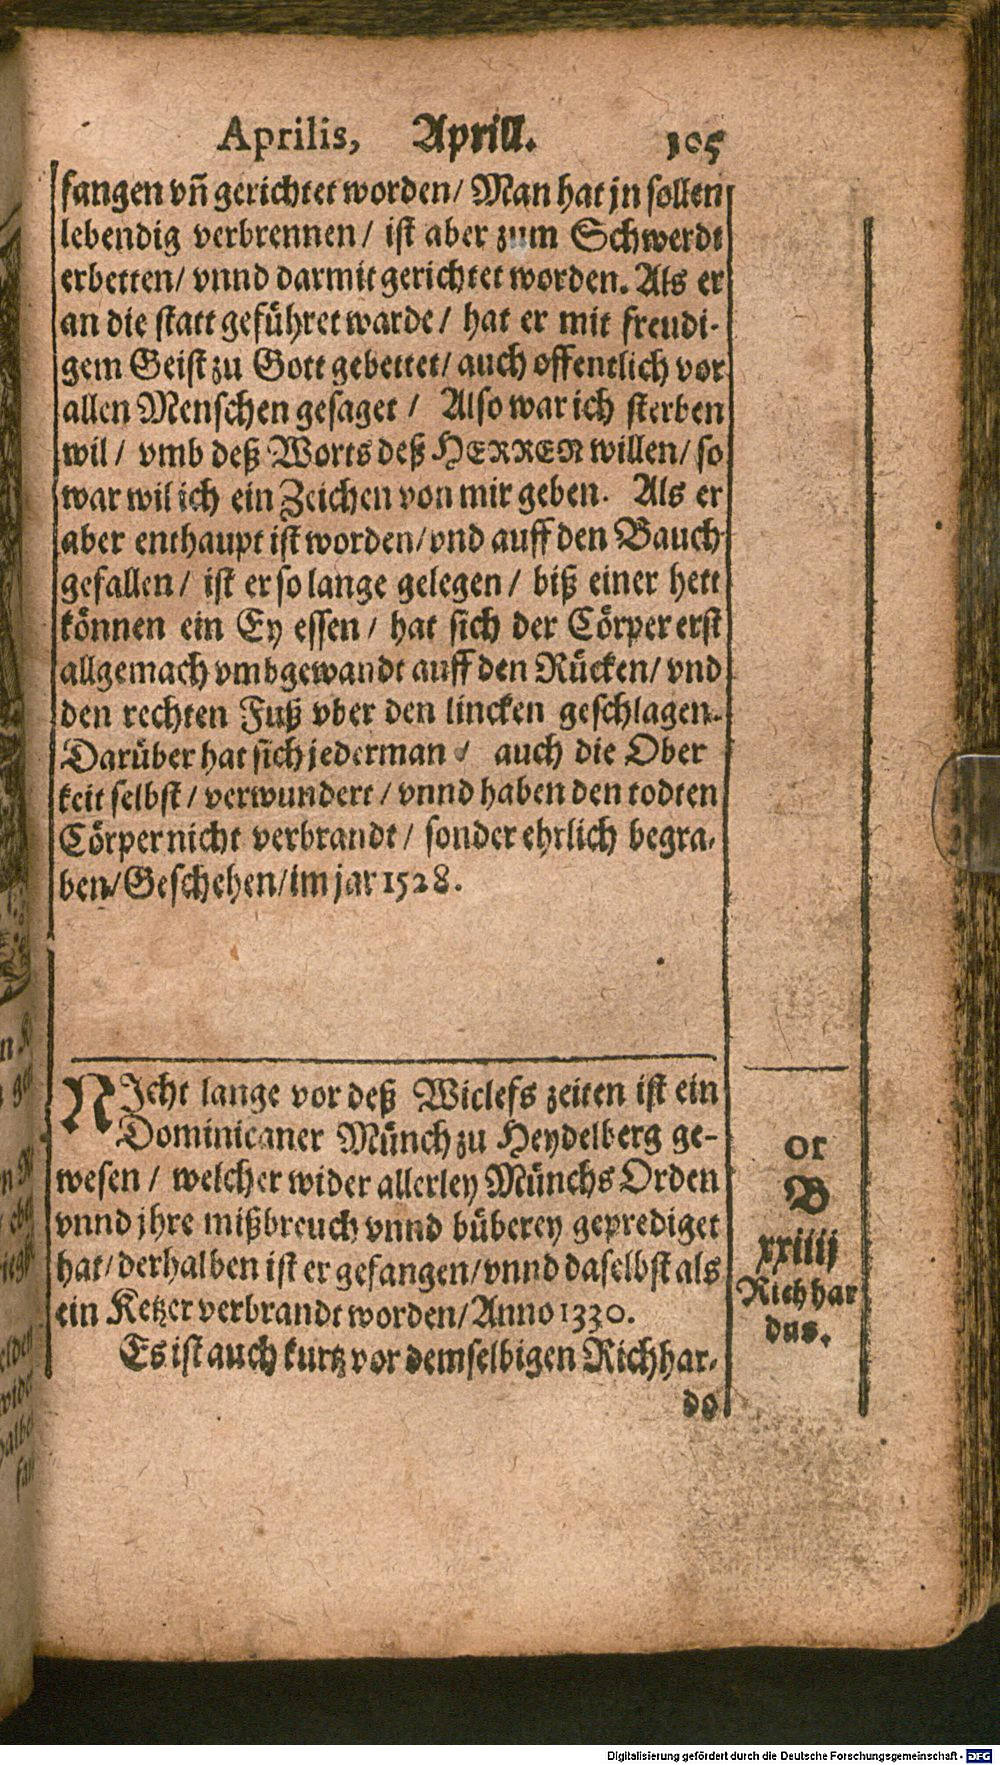 Aprilis, Aprill. 105
fangen vñ gerichtet worden/ Man hat jn sollen
lebendig verbrennen/ ist aber zum Schwerdt
erbetten/ vnnd darmit gerichtet worden. Als er
an die statt geführet warde/ hat er mit freudi-
gem Geist zu Gott gebettet/ auch offentlich vor
allen Menschen gesaget/ Also war ich sterben
wil/ vmb deß Worts deß HERREN willen/ so
war wil ich ein Zeichen von mir geben. Als er
aber enthaupt ist worden/ vnd auff den Bauch
gefallen/ ist er so lange gelegen/ biß einer hett
können ein Ey essen/ hat sich der Cörper erst
allgemach vmbgewandt auff den Rücken/ vnd
den rechten Fuß vber den lincken geschlagen.
Darüber hat sich jederman/ auch die Ober
keit selbst/ verwundert/ vnnd haben den todten
Cörper nicht verbrandt/ sonder ehrlich begra-
ben/ Geschehen/ im jar 1528.
NIcht lange vor deß Wiclefs zeiten ist ein
Dominicaner Münch zu Heydelberg ge-
wesen/ welcher wider allerley Münchs Orden
vnnd jhre mißbreuch vnnd büberey geprediget
hat/ derhalben ist er gefangen/ vnnd daselbst als
ein Ketzer verbrandt worden/ Anno 1330.
Es ist auch kurtz vor demselbigen Richhar-
do
or
B
xxiiij
Richhar
dus.
Digitalisierung gefördert durch die Deutsche Forschungsgemeinschaft - DFG